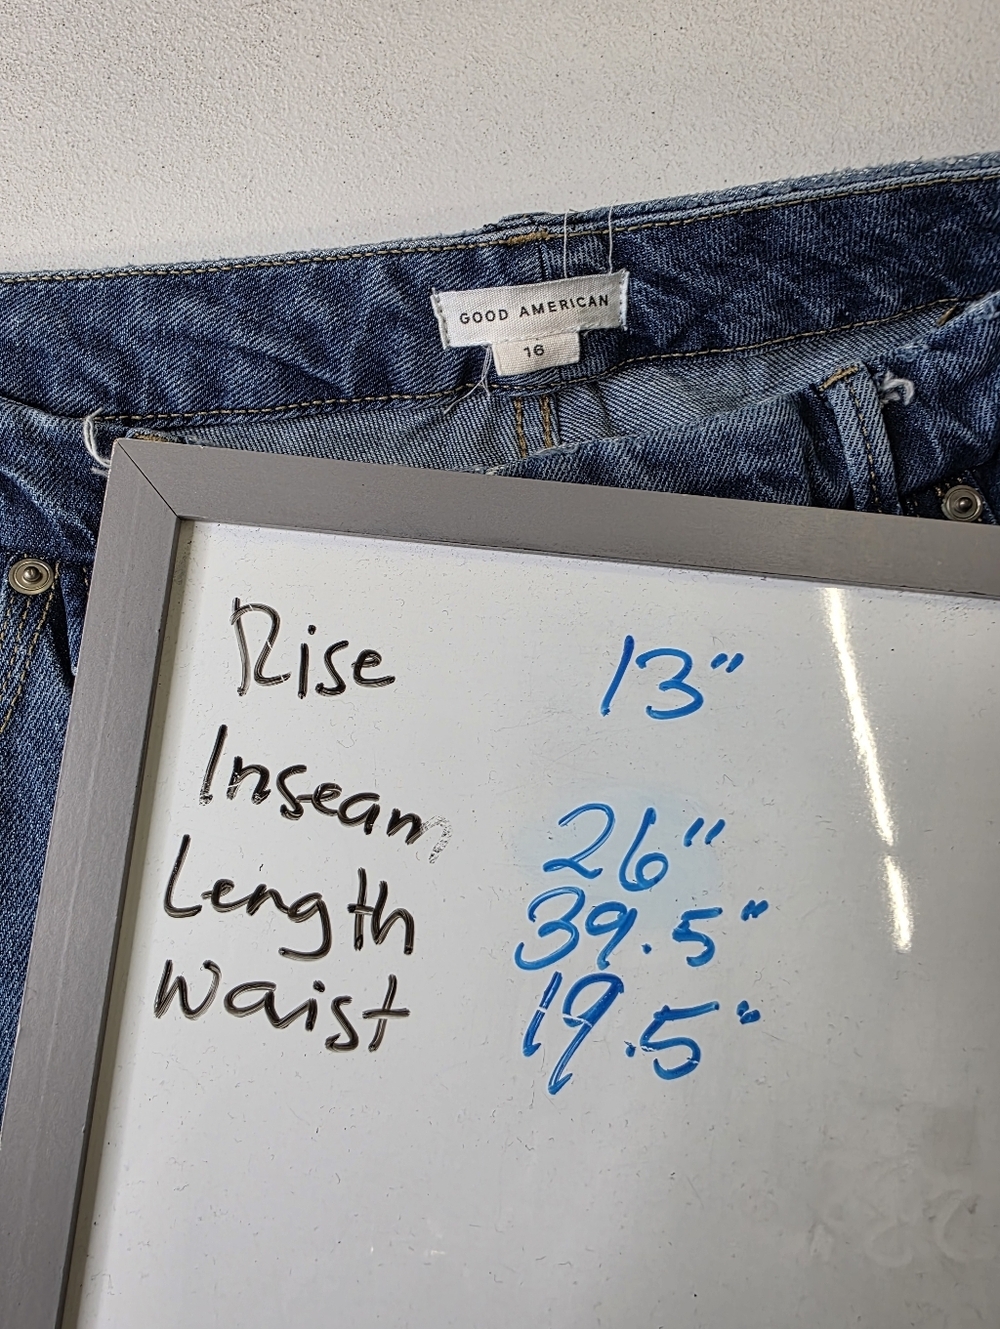 GOOD AMERICAN
16
Rise 13"
Inseam 26"
Length 39.5"
Waist 19.5"